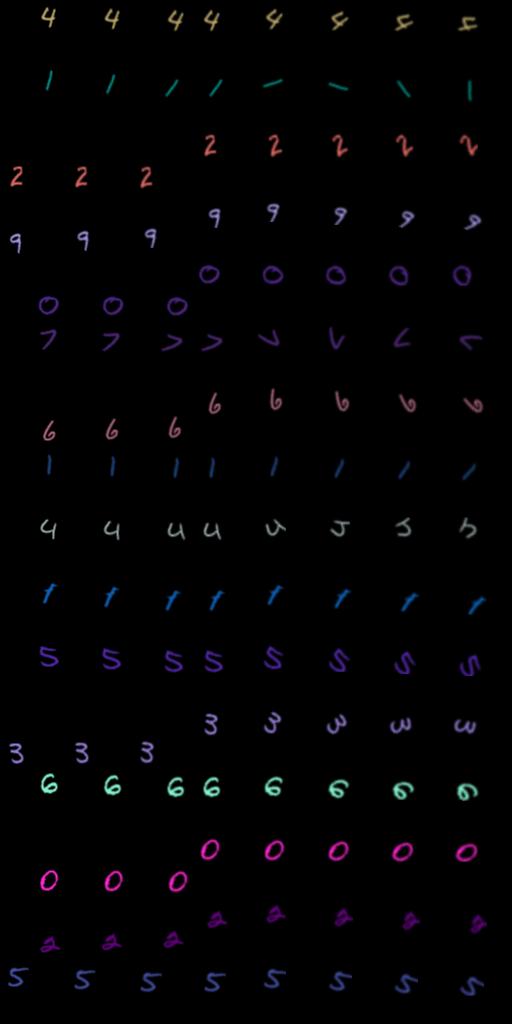 4 4 4 4 4 4 4 4
1 1 1 1 1 1 1 1
2 2 2 2 2 2 2 2
9 9 9 9 9 9 9 9
0 0 0 0 0 0 0 0
7 7 7 7 7 7 7 7
6 6 6 6 6 6 6 6
1 1 1 1 1 1 1 1
4 4 4 4 4 4 4 4
5 5 5 5 5 5 5 5
3 3 3 3 3 3 3 3
6 6 6 6 6 6 6 6
0 0 0 0 0 0 0 0
2 2 2 2 2 2 2 2
5 5 5 5 5 5 5 5